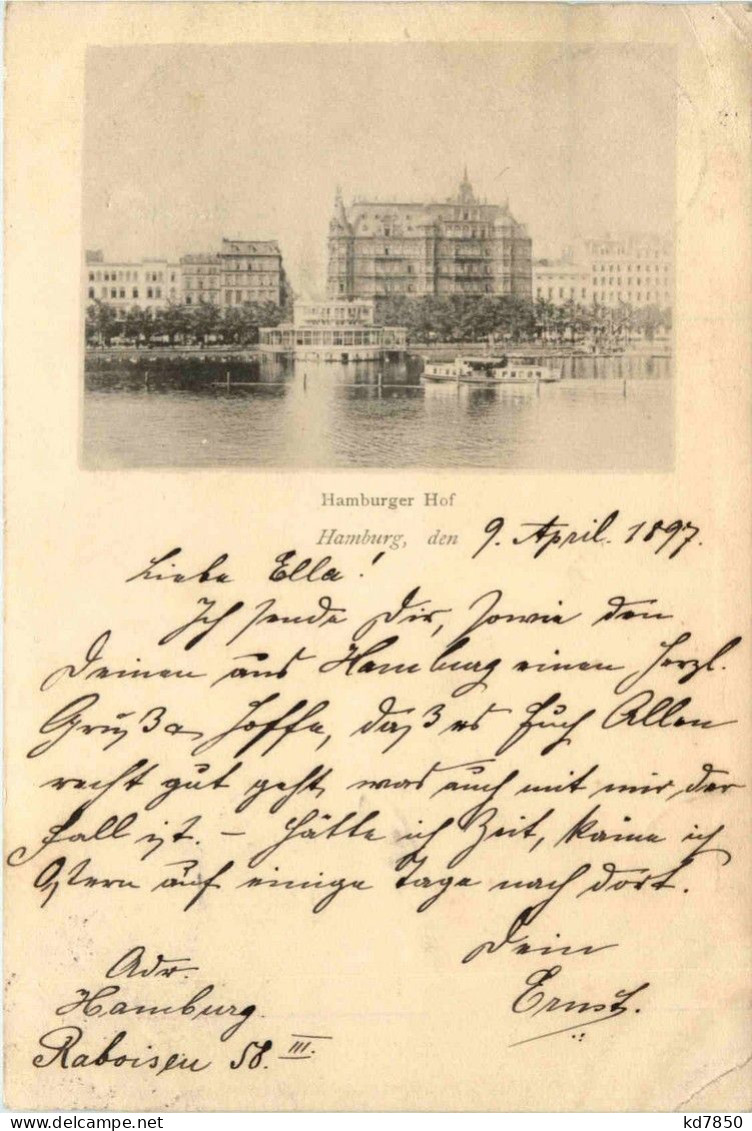 Hamburger Hof
Hamburg, den 9. April. 1897.
Liebe Ella!
Ich sende Dir, sowie den
Deinen aus Hamburg einen herzl.
Gruß u. hoffe, daß es Euch Allen
recht gut geht, was auch mit mir der
Fall ist. – Hätte ich Zeit, käme ich
Ostern auf einige Tage nach dort.
Dein
Ernst.
Adr.
Hamburg.
Raboisen 58. III.
www.delcampe.net
kd7850